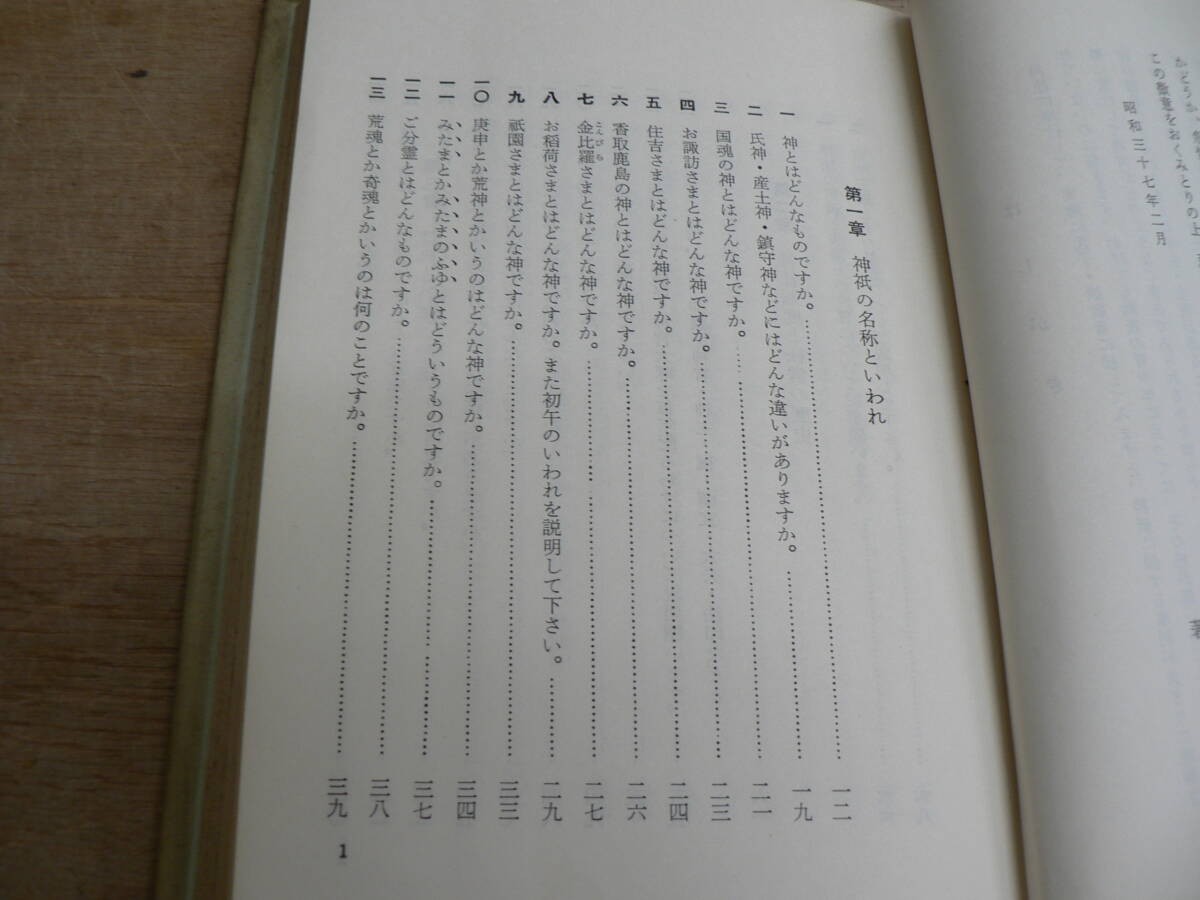 この微意をおくみとりの上
昭和三十七年二月
著
第一章 神祇の名称といわれ
一 神とはどんなものですか。……………………一二
二 氏神・産土神・鎮守神などにはどんな違いがありますか。……………………一九
三 国魂の神とはどんな神ですか。……………………二一
四 お諏訪さまとはどんな神ですか。……………………二三
五 住吉さまとはどんな神ですか。……………………二四
六 香取鹿島の神とはどんな神ですか。……………………二六
七 金比羅さまとはどんな神ですか。……………………二七
こんぴら
八 お稲荷さまとはどんな神ですか。また初午のいわれを説明して下さい。…………二九
九 祇園さまとはどんな神ですか。……………………三三
一〇 庚申とか荒神とかいうのはどんな神ですか。……………………三四
一一 みたまとかみたまのふゆとはどういうものですか。……………………三七
一二 ご分霊とはどんなものですか。……………………三八
一三 荒魂とか奇魂とかいうのは何のことですか。……………………三九
1